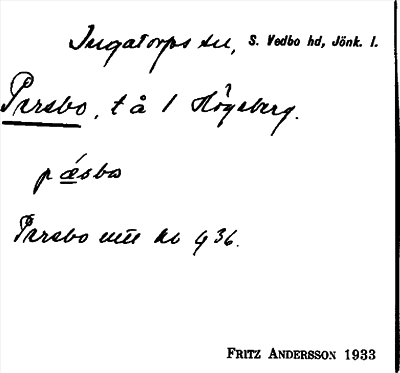 Ingatorps sn, S. Vedbo hd, Jönk. l.
Persbo, t å 1 Högaberg.
pǽsbo
Persbo utt kb 936.
FRITZ ANDERSSON 1933